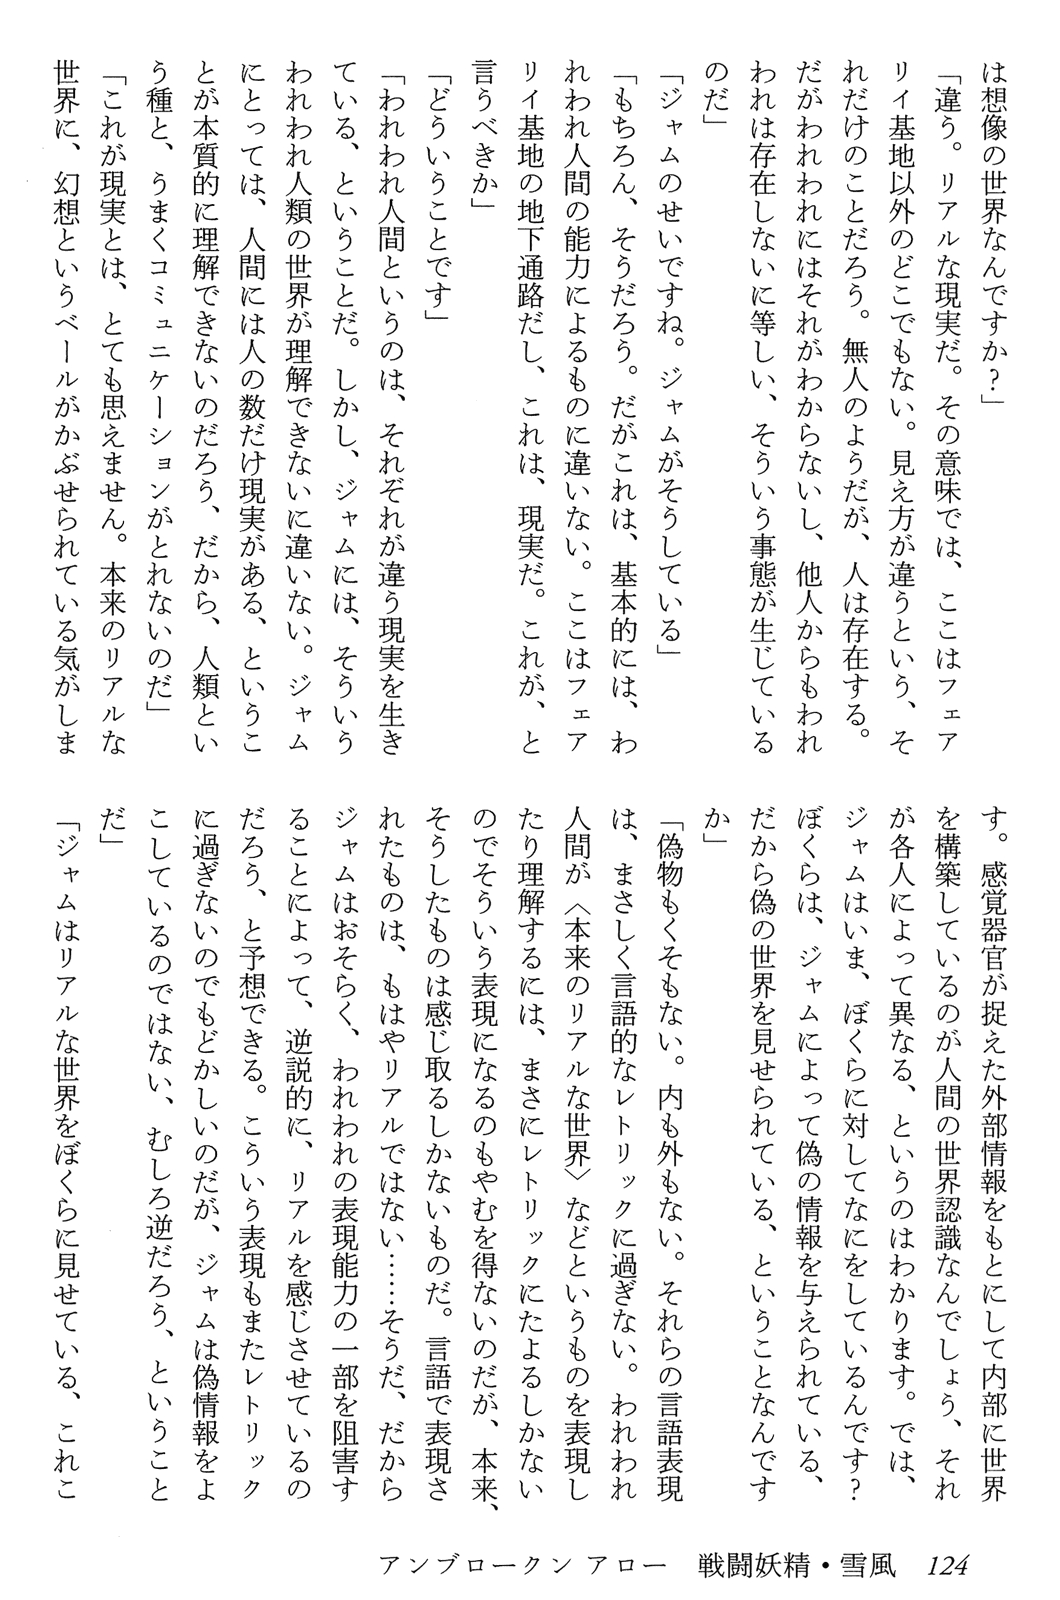 は想像の世界なんですか？」
「違う。リアルな現実だ。その意味では、ここはフェア
リイ基地以外のどこでもない。見え方が違うという、そ
れだけのことだろう。無人のようだが、人は存在する。
だがわれわれにはそれがわからないし、他人からもわれ
われは存在しないに等しい、そういう事態が生じている
のだ」
「ジャムのせいですね。ジャムがそうしている」
「もちろん、そうだろう。だがこれは、基本的には、わ
れわれ人間の能力によるものに違いない。ここはフェア
リイ基地の地下通路だし、これは、現実だ。これが、と
言うべきか」
「どういうことです」
「われわれ人間というのは、それぞれが違う現実を生き
ている、ということだ。しかし、ジャムには、そういう
われわれ人類の世界が理解できないに違いない。ジャム
にとっては、人間には人の数だけ現実がある、というこ
とが本質的に理解できないのだろう、だから、人類とい
う種と、うまくコミュニケーションがとれないのだ」
「これが現実とは、とても思えません。本来のリアルな
世界に、幻想というベールがかぶせられている気がしま
す。感覚器官が捉えた外部情報をもとにして内部に世界
を構築しているのが人間の世界認識なんでしょう、それ
が各人によって異なる、というのはわかります。では、
ジャムはいま、ぼくらに対してなにをしているんです？
ぼくらは、ジャムによって偽の情報を与えられている、
だから偽の世界を見せられている、ということなんです
か」
「偽物もくそもない。内も外もない。それらの言語表現
は、まさしく言語的なレトリックに過ぎない。われわれ
人間が〈本来のリアルな世界〉などというものを表現し
たり理解するには、まさにレトリックにたよるしかない
のでそういう表現になるのもやむを得ないのだが、本来、
そうしたものは感じ取るしかないものだ。言語で表現さ
れたものは、もはやリアルではない……そうだ、だから
ジャムはおそらく、われわれの表現能力の一部を阻害す
ることによって、逆説的に、リアルを感じさせているの
だろう、と予想できる。こういう表現もまたレトリック
に過ぎないのでもどかしいのだが、ジャムは偽情報をよ
こしているのではない、むしろ逆だろう、ということ
だ」
「ジャムはリアルな世界をぼくらに見せている、これこ
アンブロークン アロー　戦闘妖精・雪風　124